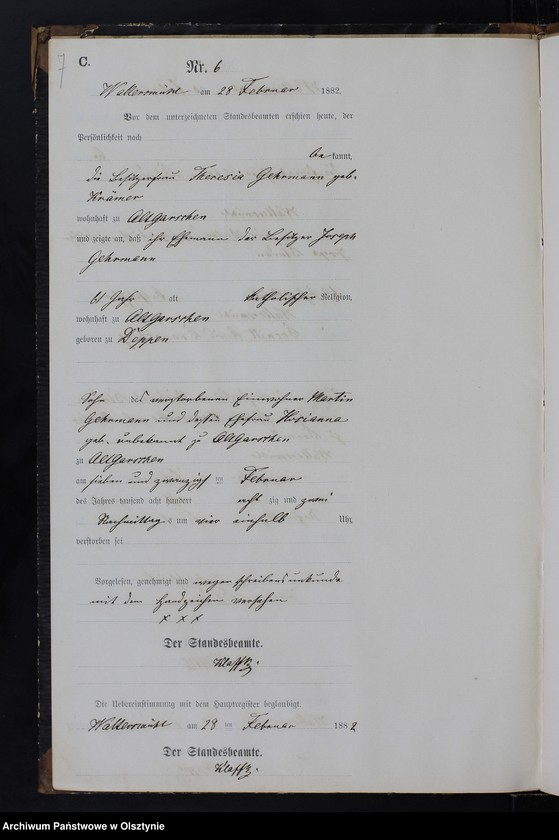 7
C.
Nr. 6
Waltersmühl am 28 Februar 1882.
Vor dem unterzeichneten Standesbeamten erschien heute, der
Persönlichkeit nach
bekannt,
die Besitzerfrau Theresia Gehrmann geb.
Krämer
wohnhaft zu Altgarschen
und zeigte an, daß ihr Ehemann der Besitzer Joseph
Gehrmann
61 Jahr alt katholischer Religion,
wohnhaft zu Altgarschen
geboren zu Deppen
Sohn des verstorbenen Einwohner Martin
Gehrmann und dessen Ehefrau
geb. unbekannt zu Altgarschen
zu Altgarschen
am sieben und zwanzigst ten Februar
des Jahres tausend acht hundert acht zig und zwei
Nachmittag s um vier einhalb Uhr,
verstorben sei
Vorgelesen, genehmigt und wegen schreibensunkunde
mit dem Handzeichen versehen
x x x
Der Standesbeamte.
Die Uebereinstimmung mit dem Hauptregister beglaubigt.
Waltersmühl am 28 ten Februar 1882
Der Standesbeamte.
Archiwum Państwowe w Olsztynie